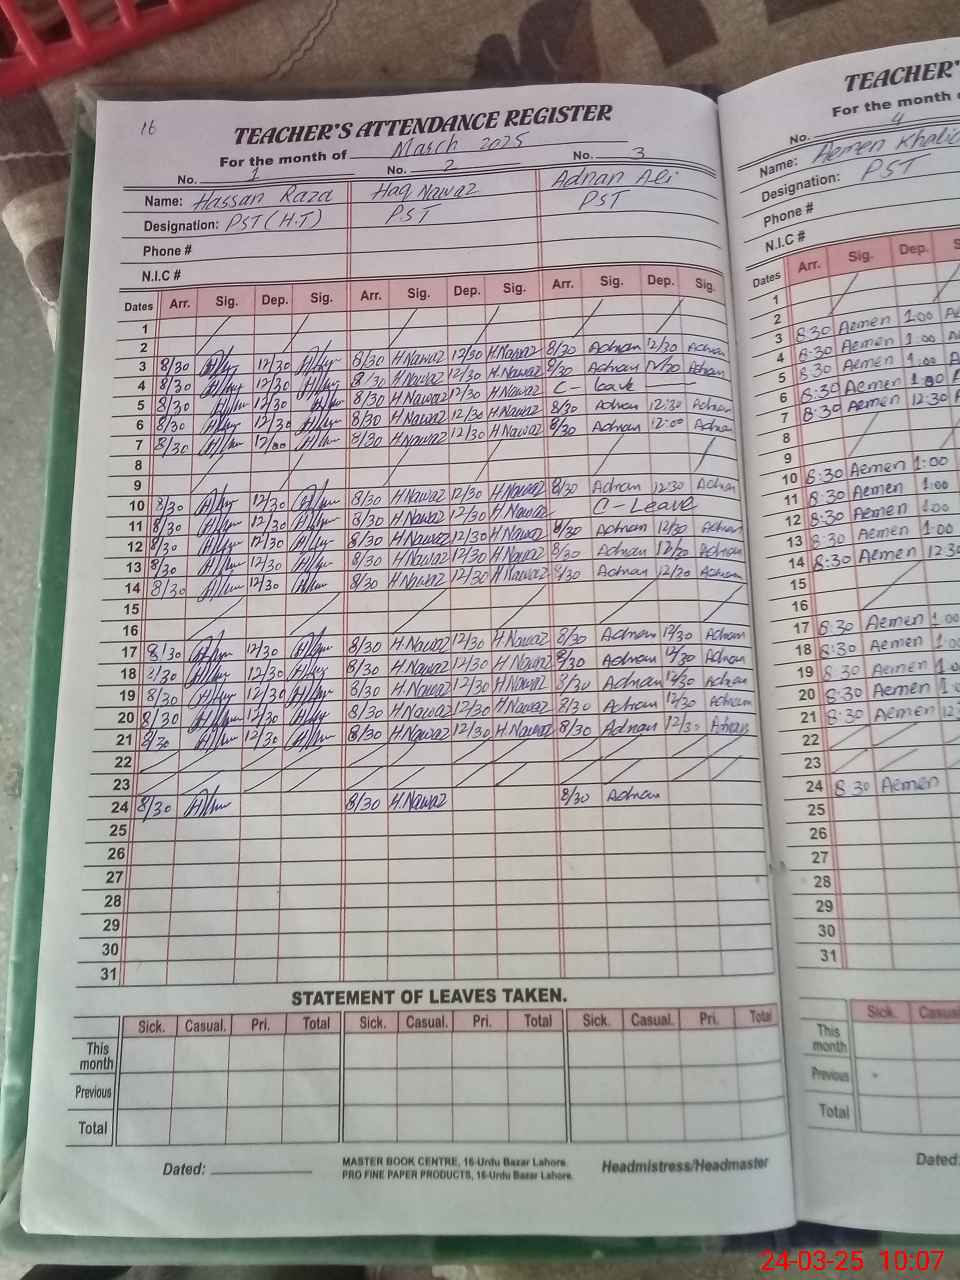 16
TEACHER'S ATTENDANCE REGISTER
For the month of March 2025
No. 1 No. 2 No. 3
Name: Hassan Raza Haq Nawaz Adnan Ali
Designation: PST (H.T) PST PST
Phone #
N.I.C #
Dates Arr. Sig. Dep. Sig. Arr. Sig. Dep. Sig. Arr. Sig. Dep. Sig.
1
2
3 8/30 12/30 8/30 H.Nawaz 12/30 H.Nawaz 8/30 Adnan 12/30 Adnan
4 8/30 12/30 8/30 H.Nawaz 12/30 H.Nawaz 8/30 Adnan 12/30 Adnan
5 8/30 12/30 8/30 H.Nawaz 12/30 H.Nawaz C - leave
6 8/30 12/30 8/30 H.Nawaz 12/30 H.Nawaz 8/30 Adnan 12:30 Adnan
7 8/30 8/30 H.Nawaz 12/30 H.Nawaz 8/30 Adnan 12:00 Adnan
8
9
10 8/30 12/30 8/30 H.Nawaz 12/30 H.Nawaz 8/30 Adnan 12:30 Adnan
11 8/30 12/30 8/30 H.Nawaz 12/30 H.Nawaz C - Leave
12 8/30 12/30 8/30 H.Nawaz 12/30 H.Nawaz 8/30 Adnan 12/30 Adnan
13 8/30 12/30 8/30 H.Nawaz 12/30 H.Nawaz 8/30 Adnan 12/30 Adnan
14 8/30 12/30 8/30 H.Nawaz 12/30 H.Nawaz 8/30 Adnan 12/30 Adnan
15
16
17 8/30 12/30 8/30 H.Nawaz 12/30 H.Nawaz 8/30 Adnan 12/30 Adnan
18 8/30 12/30 8/30 H.Nawaz 12/30 H.Nawaz 8/30 Adnan 12/30 Adnan
19 8/30 12/30 8/30 H.Nawaz 12/30 H.Nawaz 8/30 Adnan 12/30 Adnan
20 8/30 12/30 8/30 H.Nawaz 12/30 H.Nawaz 8/30 Adnan 12/30 Adnan
21 8/30 12/30 8/30 H.Nawaz 12/30 H.Nawaz 8/30 Adnan 12/30 Adnan
22
23
24 8/30 8/30 H.Nawaz 8/30 Adnan
25
26
27
28
29
30
31
STATEMENT OF LEAVES TAKEN.
Sick. Casual. Pri. Total Sick. Casual. Pri. Total Sick. Casual. Pri. Total
This month
Previous
Total
Dated:
MASTER BOOK CENTRE, 16-Urdu Bazar Lahore.
PRO FINE PAPER PRODUCTS, 16-Urdu Bazar Lahore.
Headmistress/Headmaster
TEACHER'
For the month
No. 4
Name: Aemen Khalid
Designation: PST
Phone #
N.I.C #
Dates Arr. Sig. Dep.
1
2
3 8:30 Aemen 1:00
4 8:30 Aemen 1:00
5 8:30 Aemen 1:00
6 8:30 Aemen 1:00
7 8:30 Aemen 12:30
8
9
10 8:30 Aemen 1:00
11 8:30 Aemen 1:00
12 8:30 Aemen 1:00
13 8:30 Aemen 1:00
14 8:30 Aemen 12:30
15
16
17 8:30 Aemen 1:00
18 8:30 Aemen 1:00
19 8:30 Aemen
20 8:30 Aemen
21 8:30 Aemen
22
23
24 8 30 Aemen
25
26
27
28
29
30
31
Sick.
This month
Previous
Total
Dated:
24-03-25 10:07